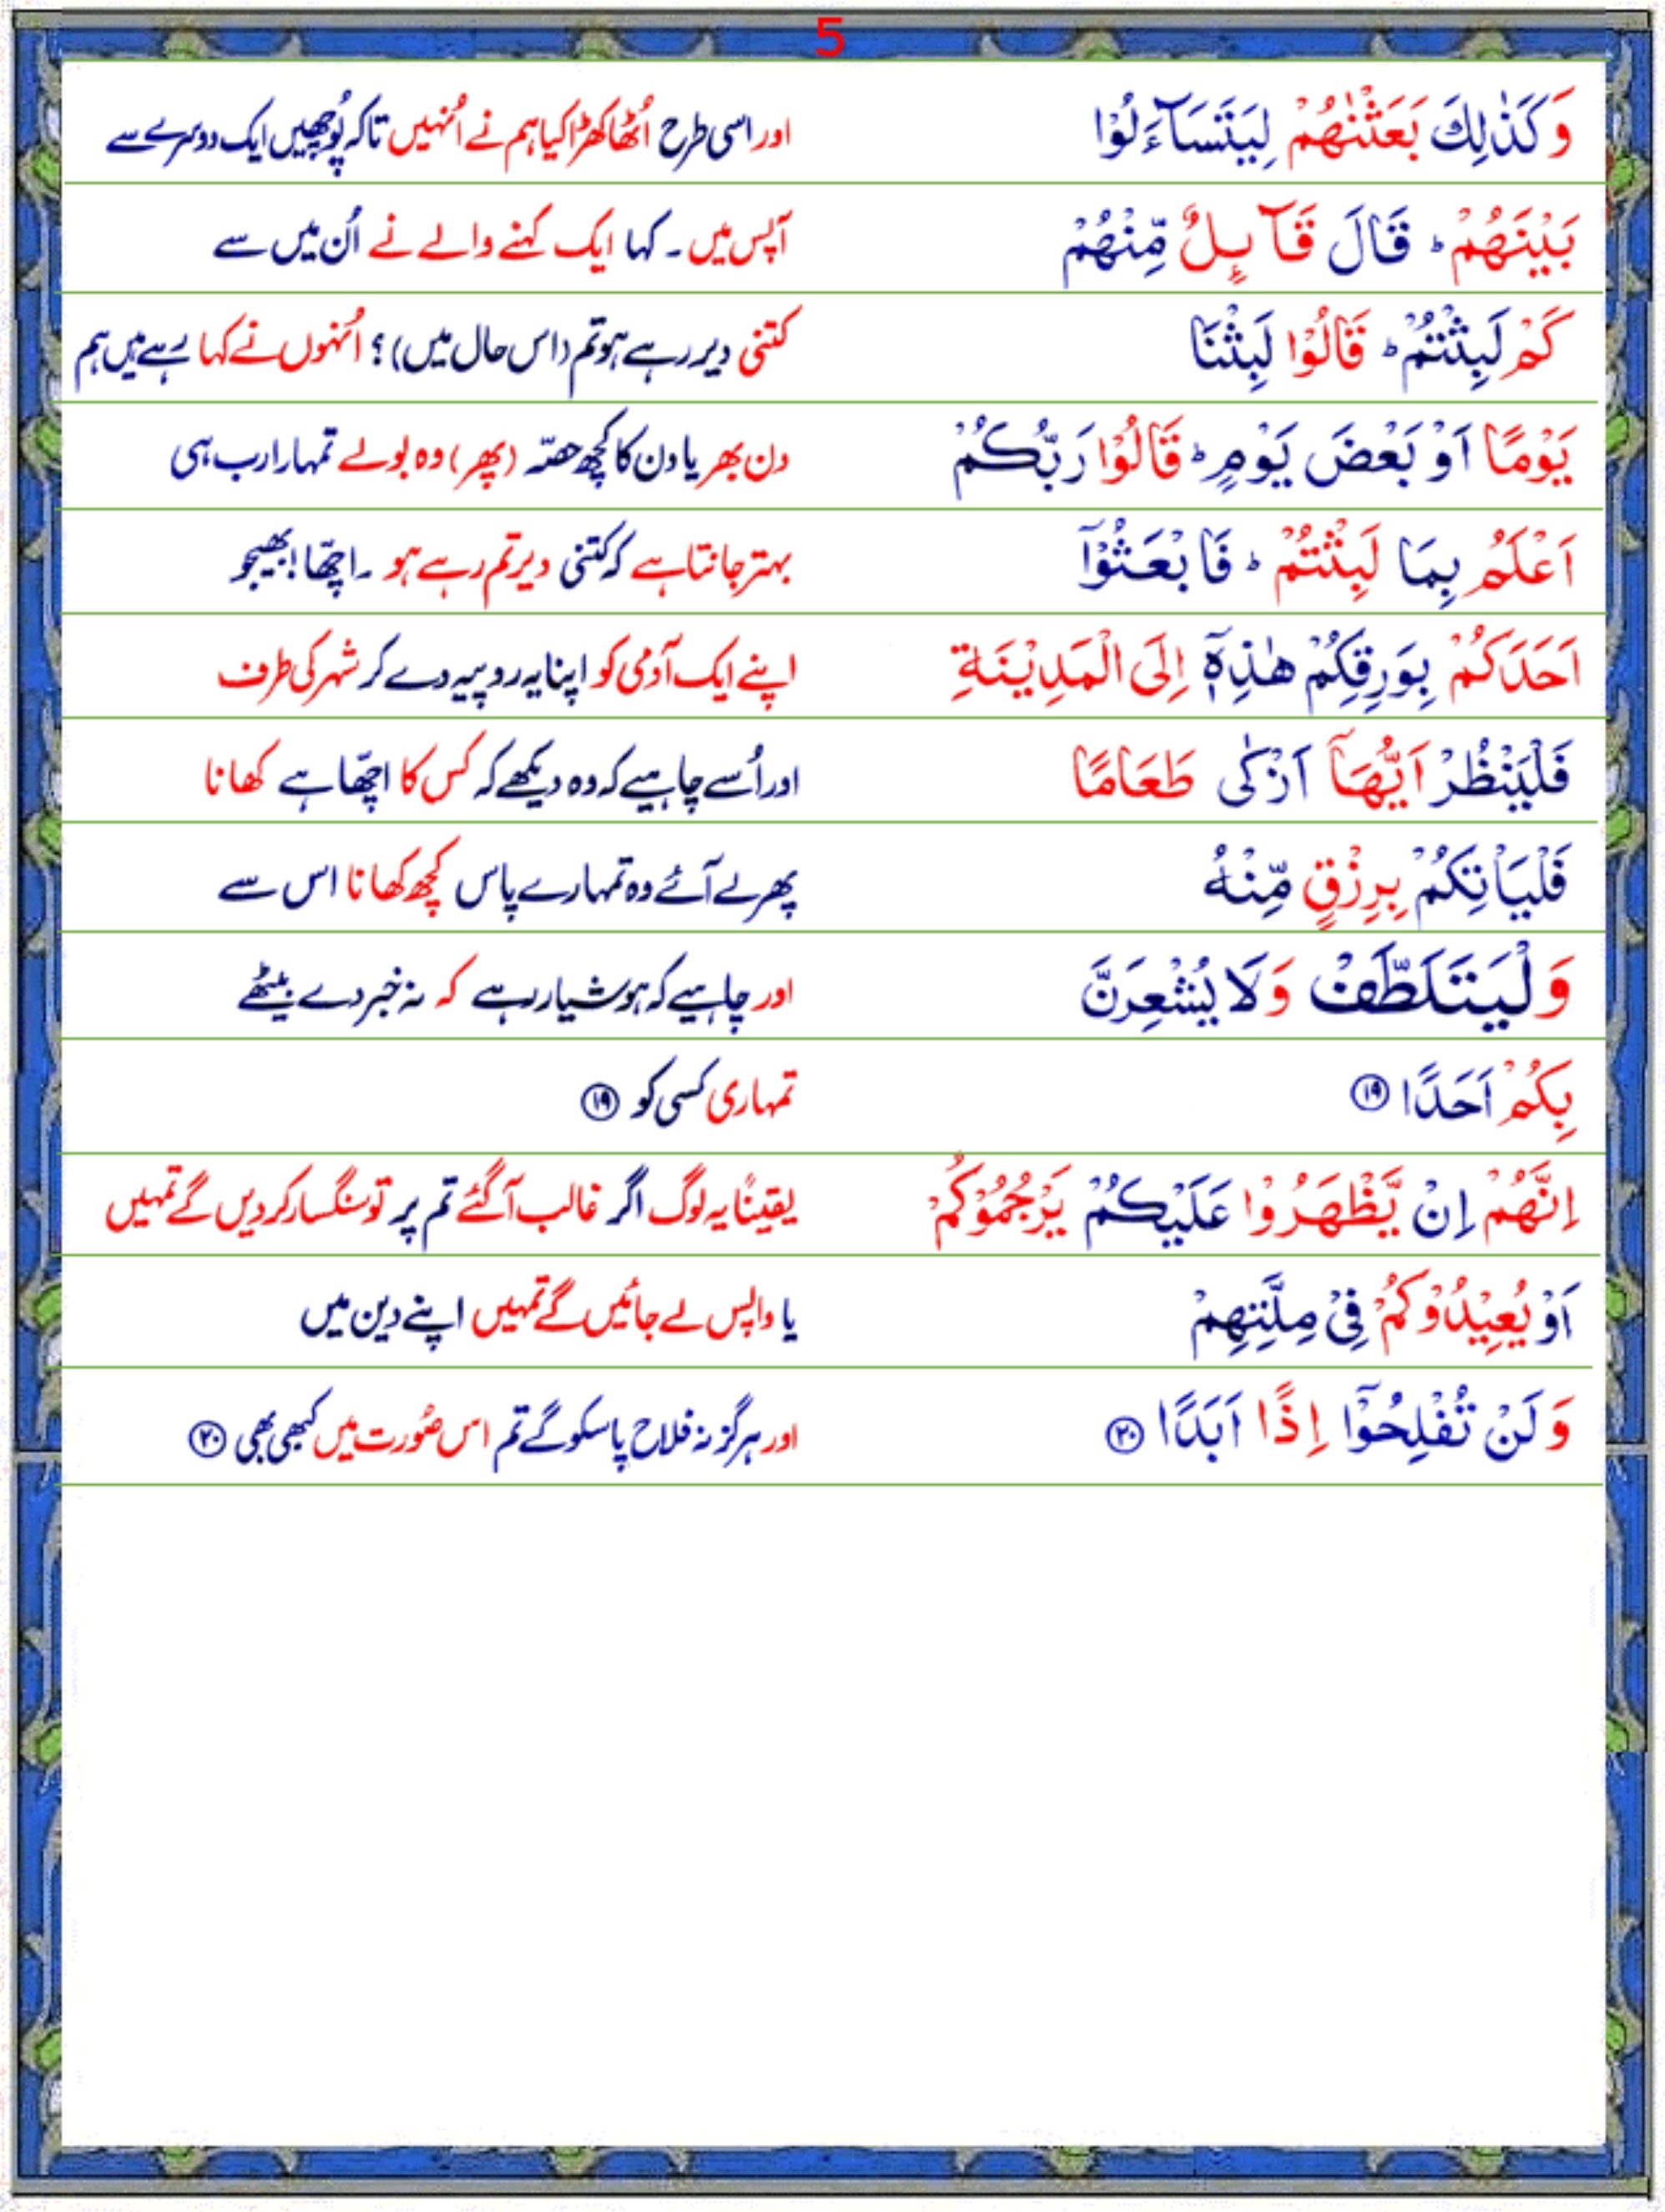 5
وَكَذٰلِكَ بَعَثْنٰهُمْ لِيَتَسَآءَلُوْا اور اسی طرح اُٹھا کھڑا کیا ہم نے اُنہیں تاکہ پُوچھیں ایک دوسرے سے
بَيْنَهُمْ ؕ قَالَ قَآىِٕلٌ مِّنْهُمْ آپس میں ۔ کہا ایک کہنے والے نے اُن میں سے
كَمْ لَبِثْتُمْ ؕ قَالُوْا لَبِثْنَا کتنی دیر رہے ہو تم (اس حال میں) ؟ اُنہوں نے کہا رہے ہیں ہم
يَوْمًا اَوْ بَعْضَ يَوْمٍ ؕ قَالُوْا رَبُّكُمْ دن بھر یا دن کا کچھ حصّہ (پھر) وہ بولے تمہارا رب ہی
اَعْلَمُ بِمَا لَبِثْتُمْ ؕ فَابْعَثُوْۤا بہتر جانتا ہے کہ کتنی دیر تم رہے ہو ۔ اچھّا! بھیجو
اَحَدَكُمْ بِوَرِقِكُمْ هٰذِهٖۤ اِلَى الْمَدِيْنَةِ اپنے ایک آدمی کو اپنا یہ روپیہ دے کر شہر کی طرف
فَلْيَنْظُرْ اَيُّهَاۤ اَزْكٰى طَعَامًا اور اُسے چاہیے کہ وہ دیکھے کہ کس کا اچھّا ہے کھانا
فَلْيَاْتِكُمْ بِرِزْقٍ مِّنْهُ پھر لے آئے وہ تمہارے پاس کچھ کھانا اس سے
وَلْيَتَلَطَّفْ وَلَا يُشْعِرَنَّ اور چاہیے کہ ہوشیار رہے کہ نہ خبر دے بیٹھے
بِكُمْ اَحَدًا ⑲ تمہاری کسی کو ⑲
اِنَّهُمْ اِنْ يَّظْهَرُوْا عَلَيْكُمْ يَرْجُمُوْكُمْ یقینًا یہ لوگ اگر غالب آ گئے تم پر تو سنگسار کر دیں گے تمہیں
اَوْ يُعِيْدُوْكُمْ فِيْ مِلَّتِهِمْ یا واپس لے جائیں گے تمہیں اپنے دین میں
وَلَنْ تُفْلِحُوْۤا اِذًا اَبَدًا ⑳ اور ہرگز نہ فلاح پا سکو گے تم اس صُورت میں کبھی بھی ⑳